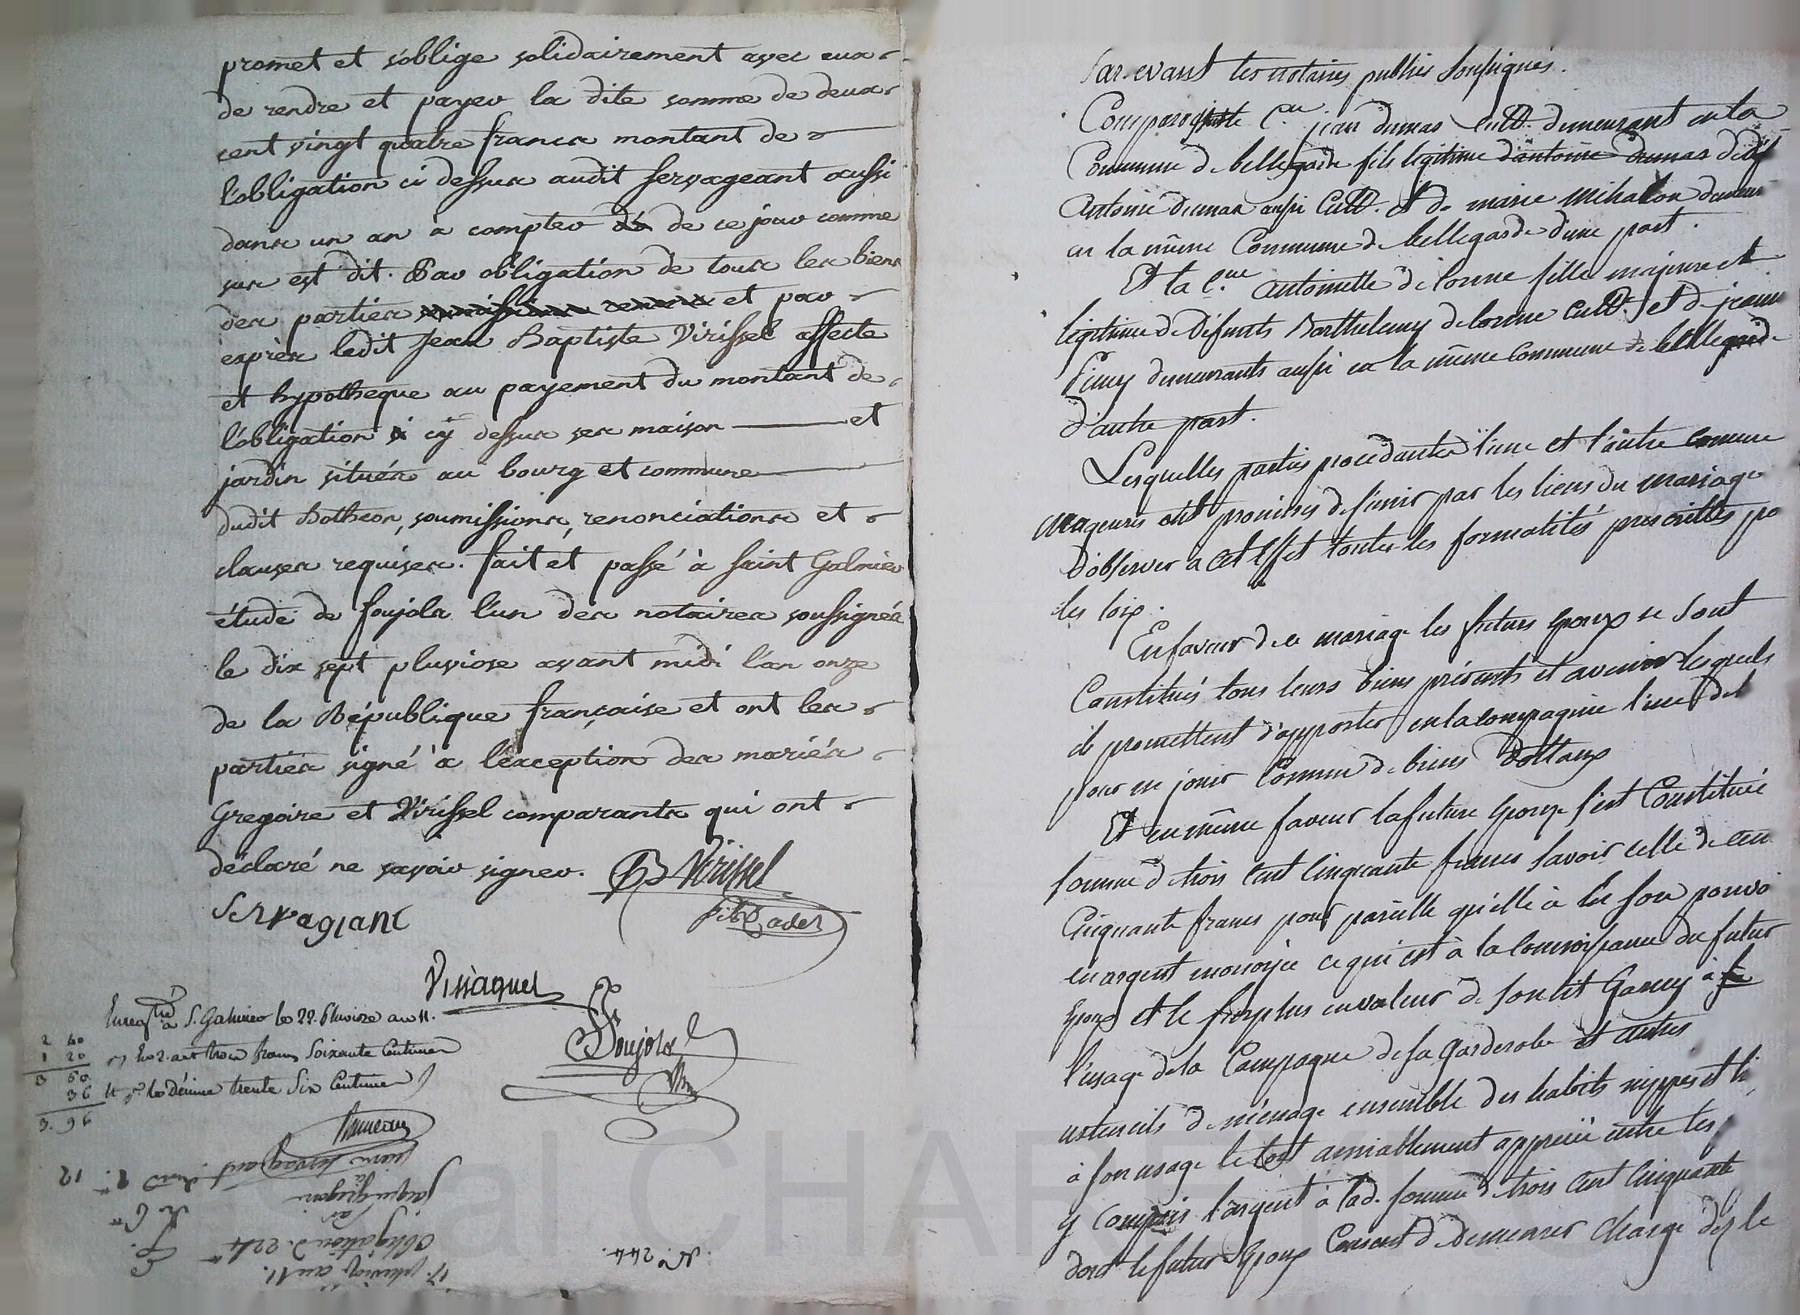 promet et s'oblige solidairement avec eux
de rendre et payer la dite somme de deux
cent vingt quatre francs montant de
l'obligation ci dessus audit Servageant aussi
dans un an a compter de ce jour comme
sus est dit. Par obligation de tous les biens
des parties et pour
exprès ledit Jean Baptiste Virissel affecte
et hypotheque au payement du montant de
l'obligation cy dessus ses maison et
jardin situés au bourg et commune
dudit Botheon, soumissions, renonciations et
clauses requises. fait et passé à Saint Galmier
étude de foujols l'un des notaires soussignés
le dix sept pluviose avant midi l'an onze
de la République française et ont les
parties signé à l'exception des mariés
Gregoire et Virissel comparants qui ont
déclaré ne savoir signer. Virissel
Servagiant
Vissaguet
foujols
Enreg.tré à S. Galmier le 22 Pluviose an 11.
2 40
1 20 trois francs Soixante Centimes
3 60
36 le Décime trente Six Centimes
3. 96
12
17 pluviose an 11.
obligation d. 224
par
jaques gregoire
N.° 244.
Par devant les notaires publics soussignés.
Comparaissent C.en jean dumas Cult. demeurant en la
Commune de bellegarde fils legitime d'antoine dumas
Antoine dumas aussi Cult. et de marie Mihalon demeur
en la même Commune de bellegarde d'une part.
Et la C.nne antoinette delorme fille majeure et
legitime de Défunts Barthelemy delorme Cult. et de jeanne
demeurants aussi en la même Commune de bellegarde
d'autre part.
Lesquelles parties procédantes l'une et l'autre comme
majeures ont promises de s'unir par les liens du mariage
d'observer a cet effet toutes les formalités prescrittes pa
les loix.
En faveur de ce mariage les futurs Epoux se sont
Constitués tous leurs biens présents et avenir lesquels
ils promettent d'apporter en la compagnie l'un de l
pour en jouir comme de biens Dottaux
Et en même faveur la future Epouse s'est Constituée
somme de trois cent Cinquante francs savoir celle de cen
Cinquante francs pour pareille qu'elle à en son pouvoi
en argent monoyé ce qui est à la connoissance du futur
Epoux et le surplus en valeur de son lit Garny à
l'usage de la Campagne de sa Garderobe et autres
ustencils de ménage ensemble des habits nippes et li
à son usage le tout amiablement apprécié entre les
y compris l'argent à lad. somme de trois cent Cinquante
dont le futur Epoux Consent de Demeurer Chargé dès le